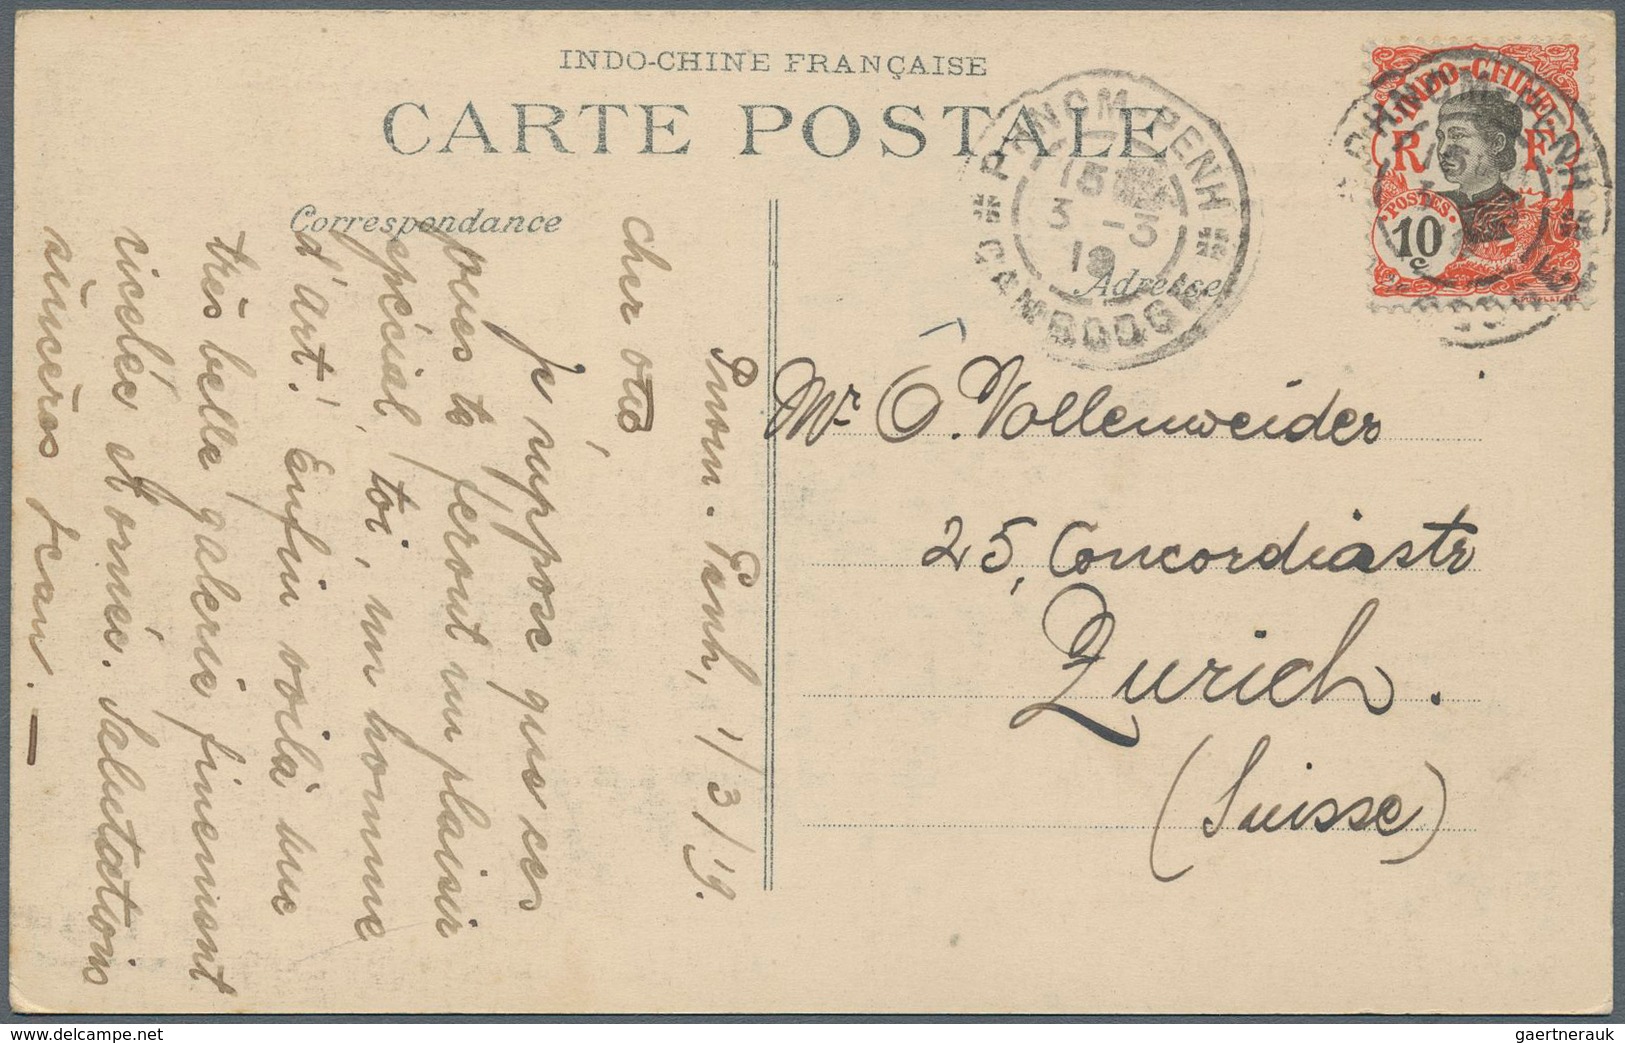 INDO-CHINE FRANÇAISE
CARTE POSTALE
Correspondance
Adresse
PHNOM-PENH
15
3 -3
19
CAMBODGE
INDO-CHINE
R F
POSTES
10 c
PHNOM-PENH
Pnom-Penh, 1/3/19.
Cher
Je suppose que ces
vues te feront un plaisir
spécial, toi, un homme
d'art. Enfin voilà une
très belle galerie finement
ciselée et ornée. Salutations
sincères Jean.
Mr O. Vollenweider
25, Concordiastr
Zurich.
(Suisse)
gaertnerauk